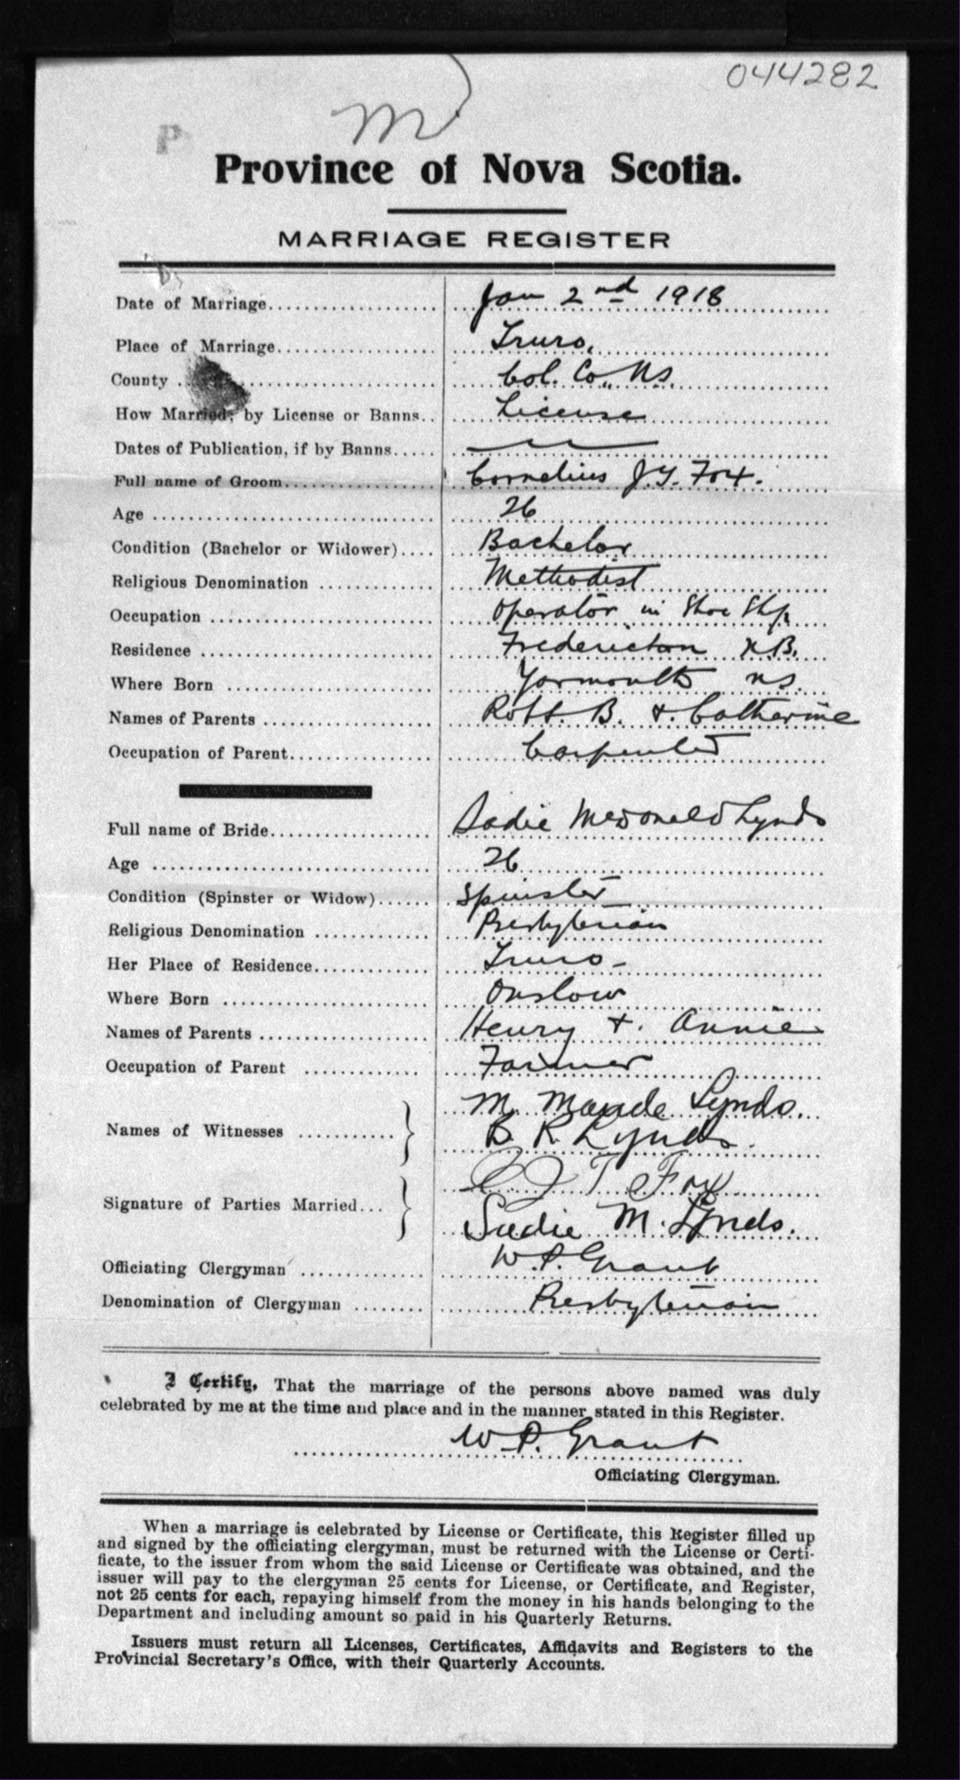 044282
m
P
Province of Nova Scotia.
MARRIAGE REGISTER
Date of Marriage.................... Jan 2nd 1918
Place of Marriage.................. Truro.
County .................. Col. Co., N.S.
How Married; by License or Banns.. License
Dates of Publication, if by Banns.....
Full name of Groom.................. Cornelius J.T. Fox.
Age .................. 26
Condition (Bachelor or Widower).... Bachelor
Religious Denomination ............ Methodist
Occupation ........................ Operator in Shoe Shp
Residence ........................ Fredericton N.B.
Where Born ...................... Yarmouth NS.
Names of Parents .................. Robt. B. +. Catherine
Occupation of Parent.................. Carpenter
Full name of Bride.................. Sadie McDonald Lynds
Age ............................ 26
Condition (Spinster or Widow)...... Spinster
Religious Denomination ............ Presbyterian
Her Place of Residence............ Truro-
Where Born ...................... Onslow
Names of Parents .................. Henry +. Annie
Occupation of Parent ............ Farmer
Names of Witnesses ........... M. Maude Lynds.
B. R. Lynds.
Signature of Parties Married... C J T Fox
Sadie M. Lynds.
Officiating Clergyman ............ W.P. Grant
Denomination of Clergyman ........ Presbyterian
I Certify, That the marriage of the persons above named was duly
celebrated by me at the time and place and in the manner stated in this Register.
W P. Grant
Officiating Clergyman.
When a marriage is celebrated by License or Certificate, this Register filled up
and signed by the officiating clergyman, must be returned with the License or Certi-
ficate, to the issuer from whom the said License or Certificate was obtained, and the
issuer will pay to the clergyman 25 cents for License, or Certificate, and Register,
not 25 cents for each, repaying himself from the money in his hands belonging to the
Department and including amount so paid in his Quarterly Returns.
Issuers must return all Licenses, Certificates, Affidavits and Registers to the
Provincial Secretary's Office, with their Quarterly Accounts.